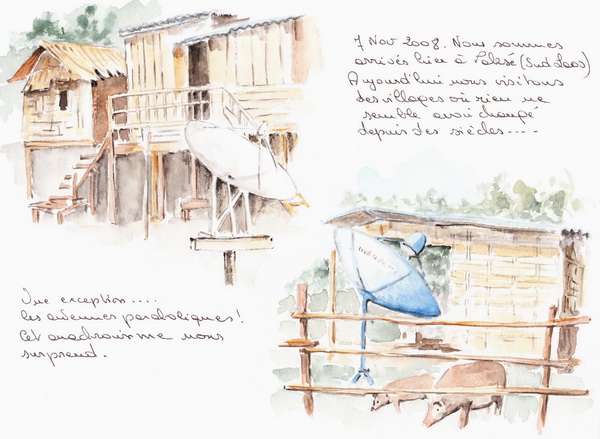 7 Nov 2008. Nous sommes
arrivés hier à Paksé (Sud Laos)
Aujourd'hui nous visitons
des villages où rien ne
semble avoir changé
depuis des siècles....
Une exception....
les antennes paraboliques!
Cet anachronisme nous
surprend.